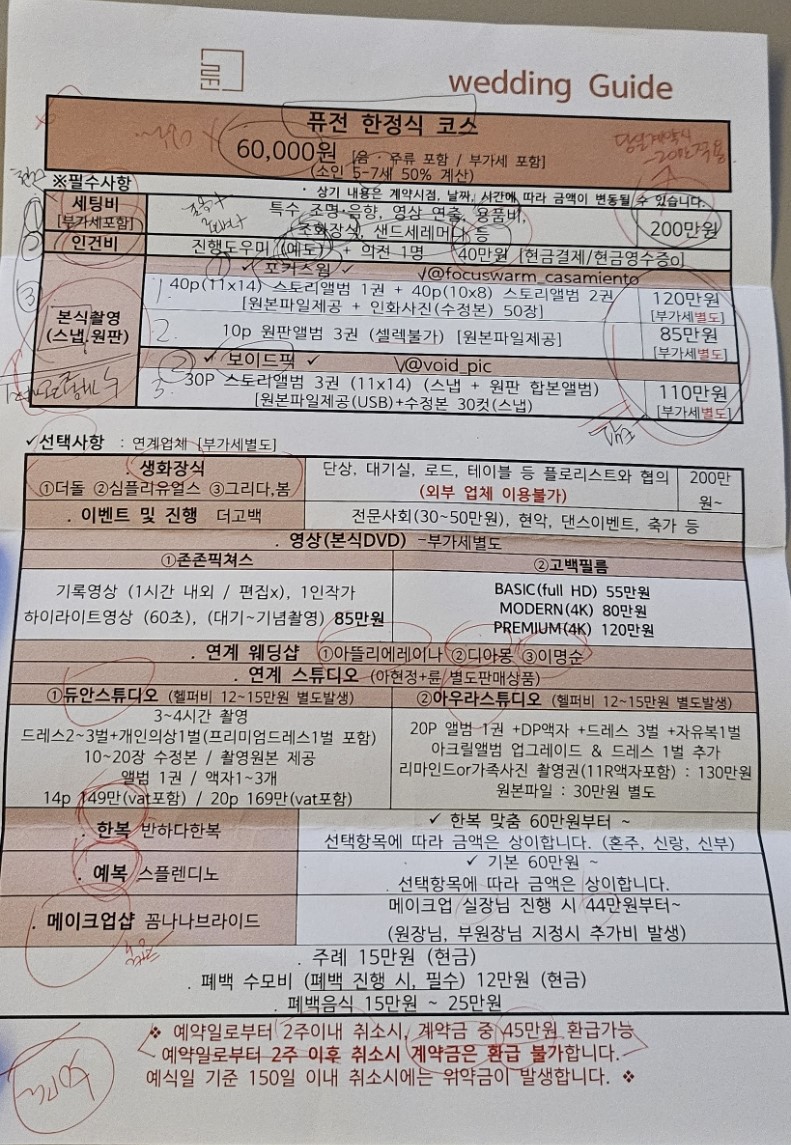 LINE
wedding Guide
퓨전 한정식 코스
60,000원 [음 · 주류 포함 / 부가세 포함]
(소인 5-7세 50% 계산)
당일계약시
※필수사항
· 상기 내용은 계약시점, 날짜, 시간에 따라 금액이 변동될 수 있습니다.
세팅비
[부가세포함]
특수 조명·음향, 영상 연출, 용품비,
조화장식, 샌드세레머니 등
200만원
인건비
진행도우미 (예도) + 의전 1명
40만원 [현금결제/현금영수증o]
본식촬영
(스냅,원판)
① ✓ 포커스웜 ✓ √@focuswarm_casamiento
40p(11x14) 스토리앨범 1권 + 40p(10x8) 스토리앨범 2권
[원본파일제공 + 인화사진(수정본) 50장]
120만원
[부가세별도]
10p 원판앨범 3권 (셀렉불가) [원본파일제공]
85만원
[부가세별도]
② ✓ 보이드픽 ✓ √@void_pic
30P 스토리앨범 3권 (11x14) (스냅 + 원판 합본앨범)
[원본파일제공(USB)+수정본 30컷(스냅)
110만원
[부가세별도]
✓선택사항 : 연계업체 [부가세별도]
. 생화장식
①더돌 ②심플라유얼스 ③그리다,봄
단상, 대기실, 로드, 테이블 등 플로리스트와 협의
(외부 업체 이용불가)
200만
원~
. 이벤트 및 진행 더고백
전문사회(30~50만원), 현악, 댄스이벤트, 축가 등
. 영상(본식DVD) -부가세별도
①존존픽쳐스
②고백필름
기록영상 (1시간 내외 / 편집x), 1인작가
하이라이트영상 (60초), (대기~기념촬영) 85만원
BASIC(full HD) 55만원
MODERN(4K) 80만원
PREMIUM(4K) 120만원
. 연계 웨딩샵 ①아뜰리에레이나 ②디아몽 ③이명순
. 연계 스튜디오 (아현정+륜/ 별도판매상품)
①듀안스튜디오 (헬퍼비 12~15만원 별도발생)
②아우라스튜디오 (헬퍼비 12~15만원 별도발생)
3~4시간 촬영
드레스2~3벌+개인의상1벌(프리미엄드레스1벌 포함)
10~20장 수정본 / 촬영원본 제공
앨범 1권 / 액자1~3개
14p 149만(vat포함) / 20p 169만(vat포함)
20P 앨범 1권 +DP액자 +드레스 3벌 +자유복1벌
아크릴앨범 업그레이드 & 드레스 1벌 추가
리마인드or가족사진 촬영권(11R액자포함) : 130만원
원본파일 : 30만원 별도
. 한복 반하다한복
✓ 한복 맞춤 60만원부터 ~
선택항목에 따라 금액은 상이합니다. (혼주, 신랑, 신부)
. 예복 스플렌디노
✓ 기본 60만원 ~
. 선택항목에 따라 금액은 상이합니다.
. 메이크업샵 꼼나나브라이드
메이크업 실장님 진행 시 44만원부터~
(원장님, 부원장님 지정시 추가비 발생)
. 주례 15만원 (현금)
. 폐백 수모비 (폐백 진행 시, 필수) 12만원 (현금)
. 폐백음식 15만원 ~ 25만원
❖ 예약일로부터 2주이내 취소시, 계약금 중 45만원 환급가능
예약일로부터 2주 이후 취소시 계약금은 환급 불가합니다.
예식일 기준 150일 이내 취소시에는 위약금이 발생합니다. ❖